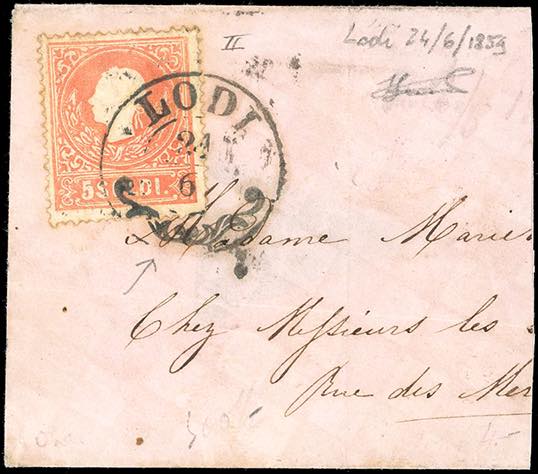 Lodi 24/6/1859
II
LODI
24
6
5 SOLDI
Madame Marie
Chez Messieurs les
Rue des Mer